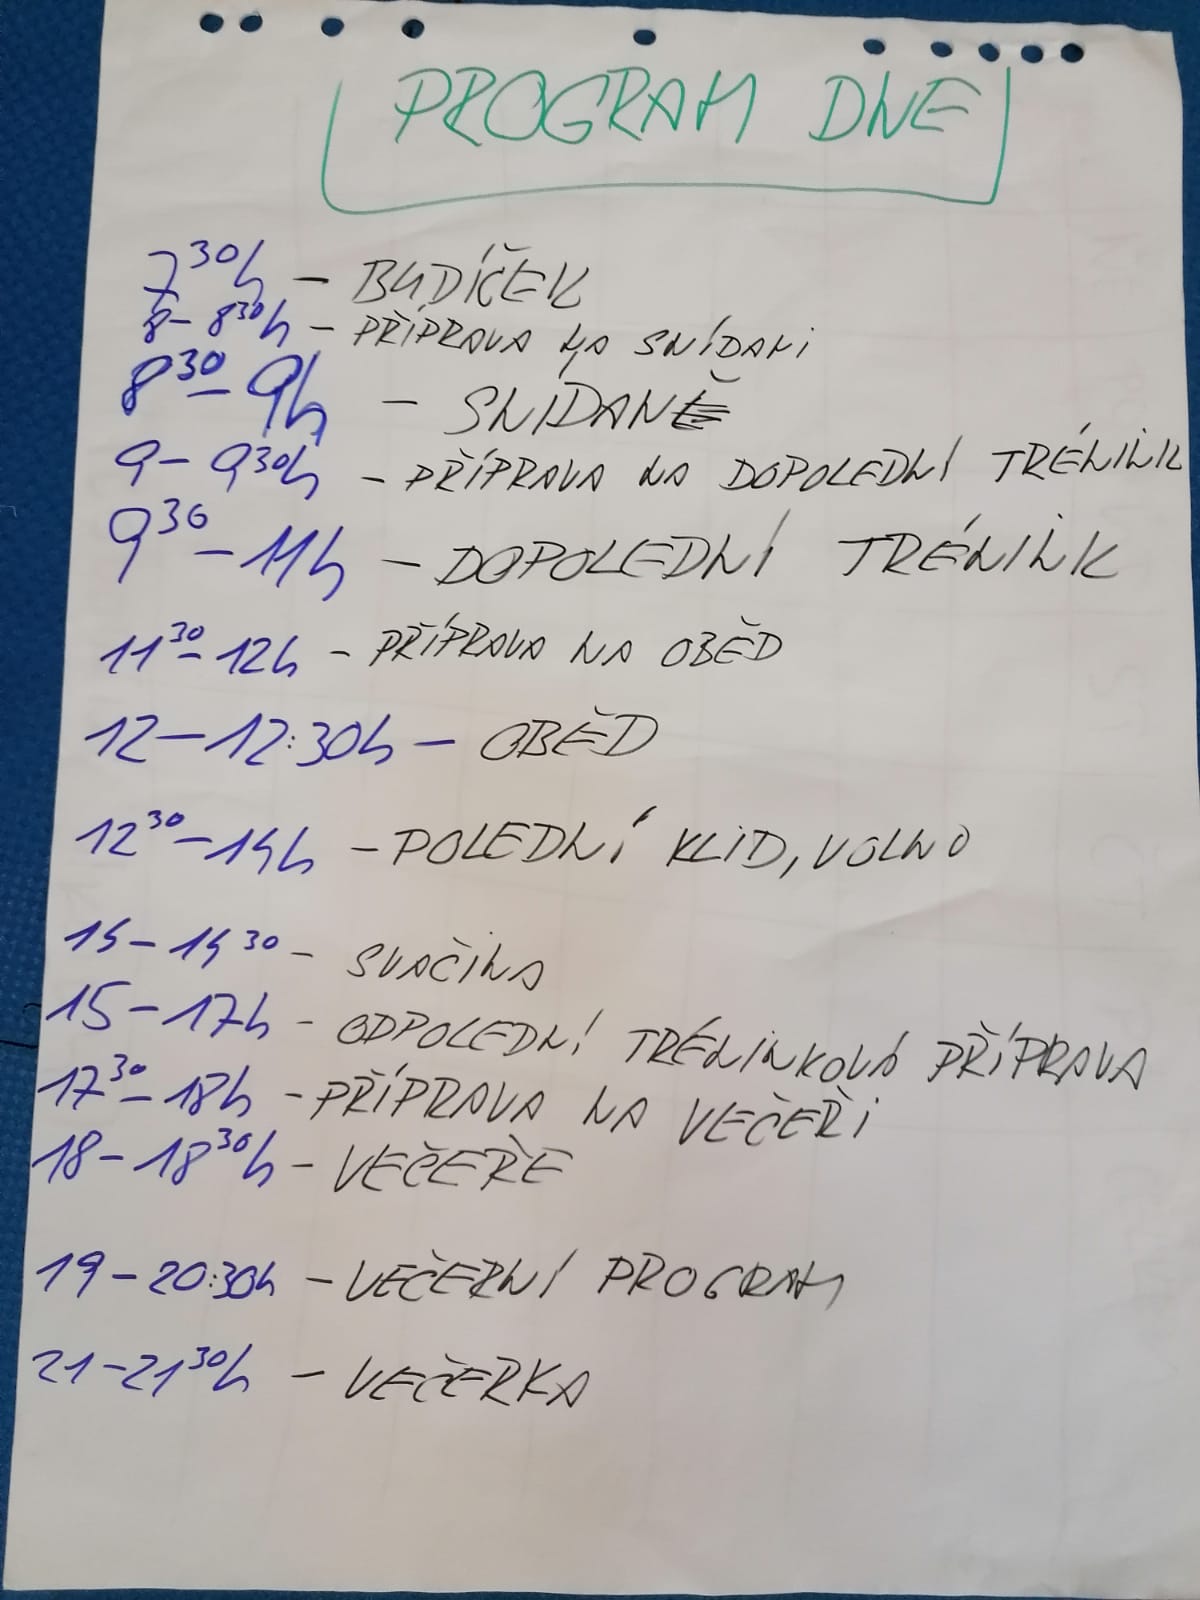 PROGRAM DNE
7³⁰h – BUDÍČEK
8 – 8³⁰h – PŘÍPRAVA NA SNÍDANI
8³⁰ – 9h – SNÍDANĚ
9 – 9³⁰h – PŘÍPRAVA NA DOPOLEDNÍ TRÉNINK
9³⁰ – 11h – DOPOLEDNÍ TRÉNINK
11³⁰ – 12h – PŘÍPRAVA NA OBĚD
12 – 12:30h – OBĚD
12³⁰ – 14h – POLEDNÍ KLID, VOLNO
14 – 14³⁰ – SVAČINA
15 – 17h – ODPOLEDNÍ TRÉNINKOVÁ PŘÍPRAVA
17³⁰ – 18h – PŘÍPRAVA NA VEČEŘI
18 – 18³⁰h – VEČEŘE
19 – 20:30h – VEČERNÍ PROGRAM
21 – 21³⁰h – VEČERKA